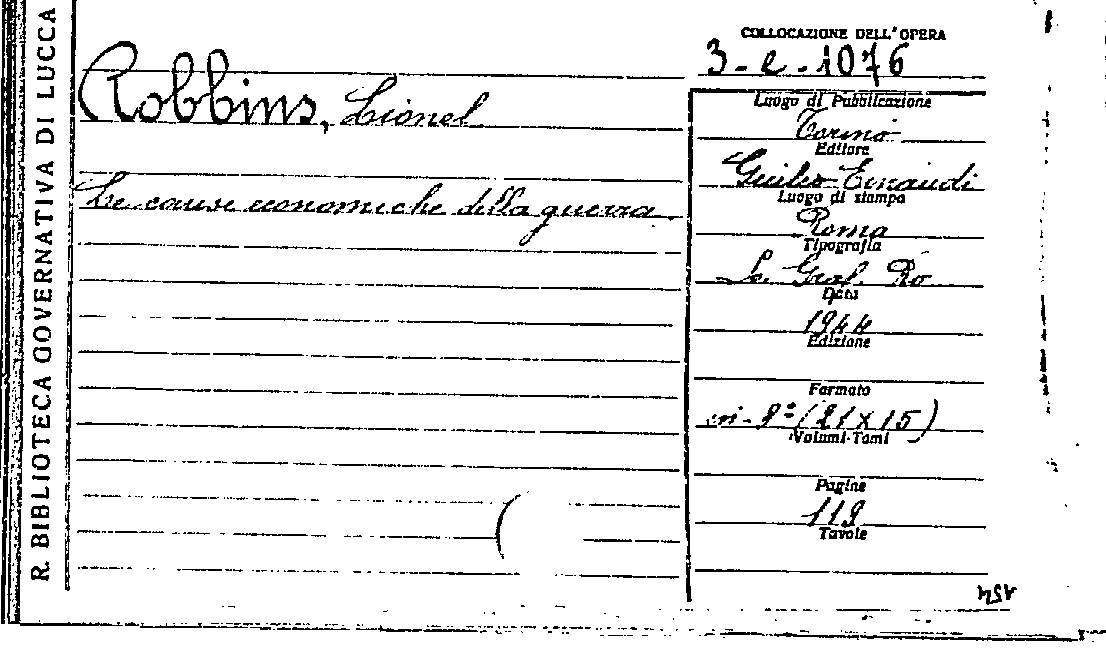 R. BIBLIOTECA GOVERNATIVA DI LUCCA
Robbins, Lionel
Le cause economiche della guerra.
COLLOCAZIONE DELL'OPERA
3-e-1076
Luogo di Pubblicazione
Torino
Editore
Giulio Einaudi
Luogo di stampa
Roma
Tipografia
So. Graf. Ro
Data
1944
Edizione
Formato
in-8º (21 x 15)
Volumi-Tomi
Pagine
119
Tavole